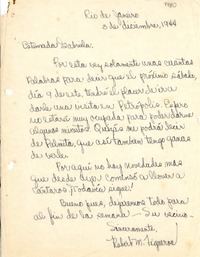 Rio de Janeiro
5 de diciembre, 1944
Estimada Gabriela:
Por esta voy solamente unas cuantas
palabras para decir que el próximo sábado,
día 9 de este, tendré el placer de ir a
darle una visita en Petrópolis. Espero
no estará muy ocupada para poder darme
algunos minutos. Quizás me podrá decir
de Palmita, que así tambien tengo ganas
de verle.
Por aquí no hay novedades mas
que desde ayer comenzó a llover a
cántaros. ¡Todavía sigue!
Bueno pues, dejaremos todo para
el fin de la semana — Su vecino.
Sinceramente,
Robert M. Figueroa